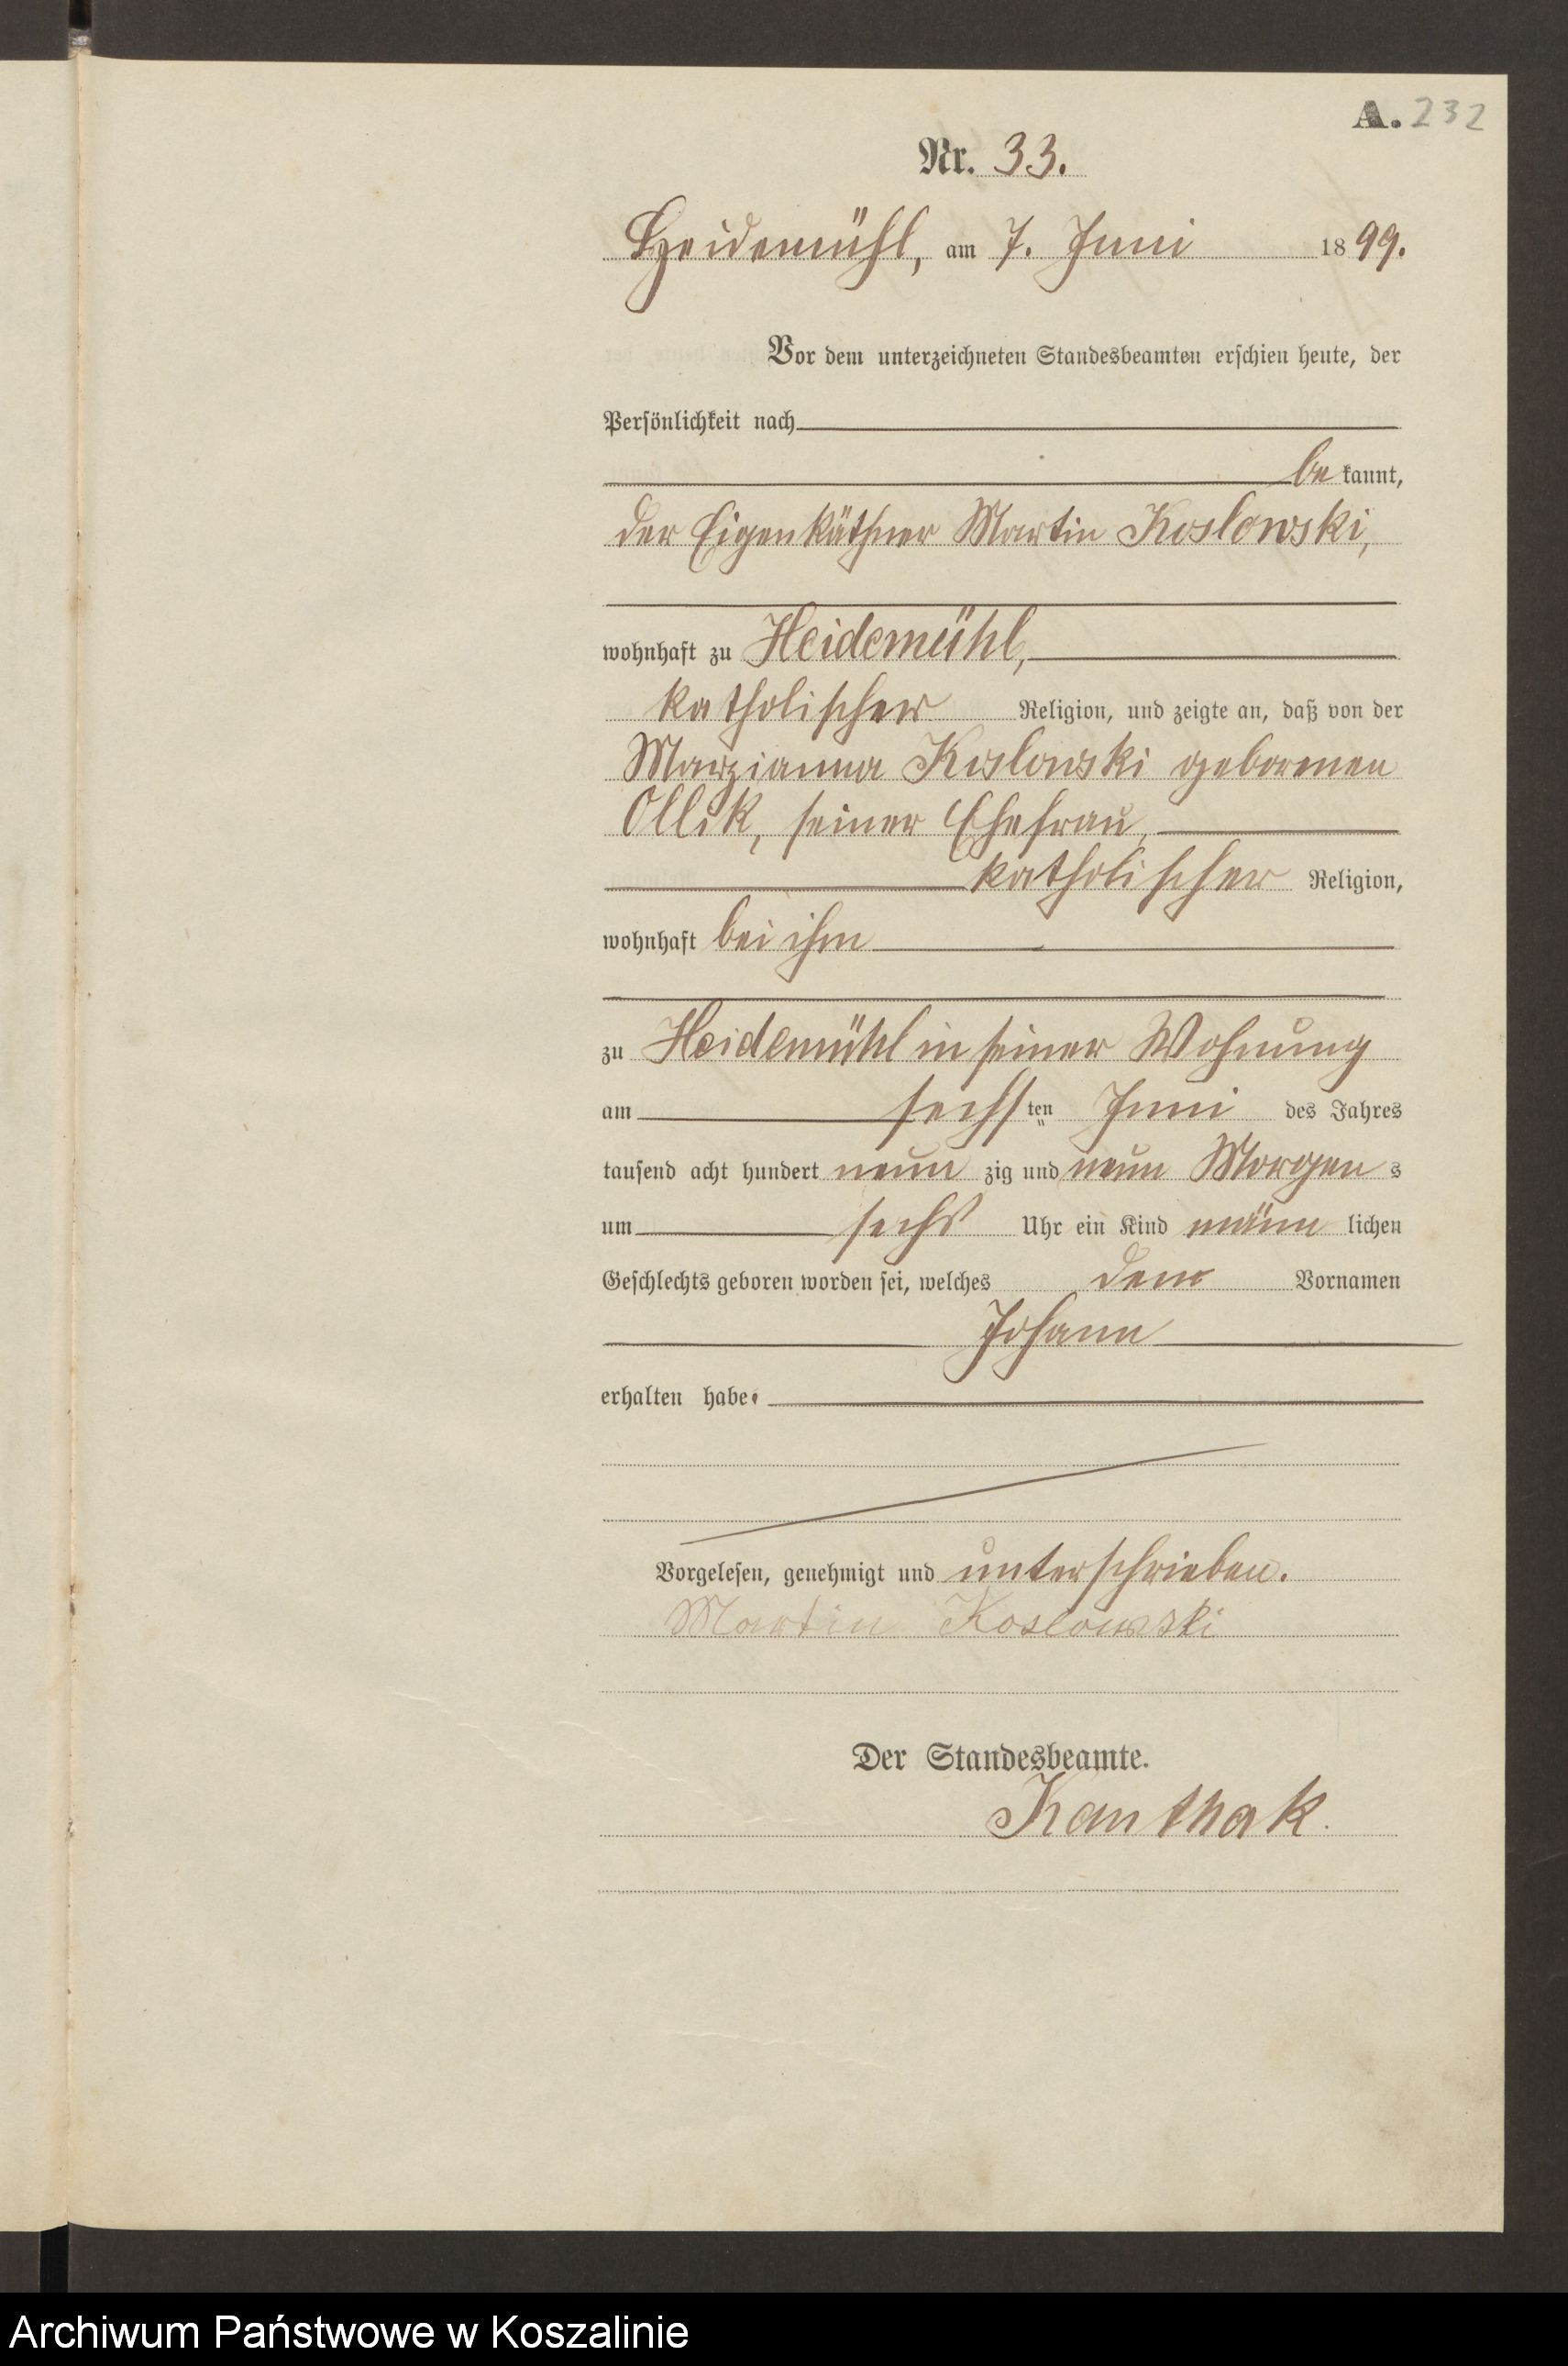 A. 232
Nr. 33.
Heidemühl, am 7. Juni 1899.
Vor dem unterzeichneten Standesbeamten erschien heute, der
Persönlichkeit nach
be kannt,
der Eigenkäthner Martin Koslowski,
wohnhaft zu Heidemühl,
katholischer Religion, und zeigte an, daß von der
Marzianna Koslowski geborenen
Ollik, seiner Ehefrau,
katholischer Religion,
wohnhaft bei ihm
zu Heidemühl in seiner Wohnung
am sechsten Juni des Jahres
tausend acht hundert neun zig und neun Morgens
um sechs Uhr ein Kind männlichen
Geschlechts geboren worden sei, welches den Vornamen
Johann
erhalten habe.
Vorgelesen, genehmigt und unterschrieben.
Martin Koslowski
Der Standesbeamte.
Kanthak.
Archiwum Państwowe w Koszalinie